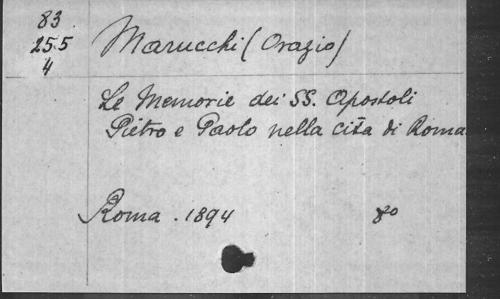 83
25.5
4
Marucchi (Orazio)
Le Memorie dei SS. Apostoli
Pietro e Paolo nella città di Roma
Roma . 1894 8o